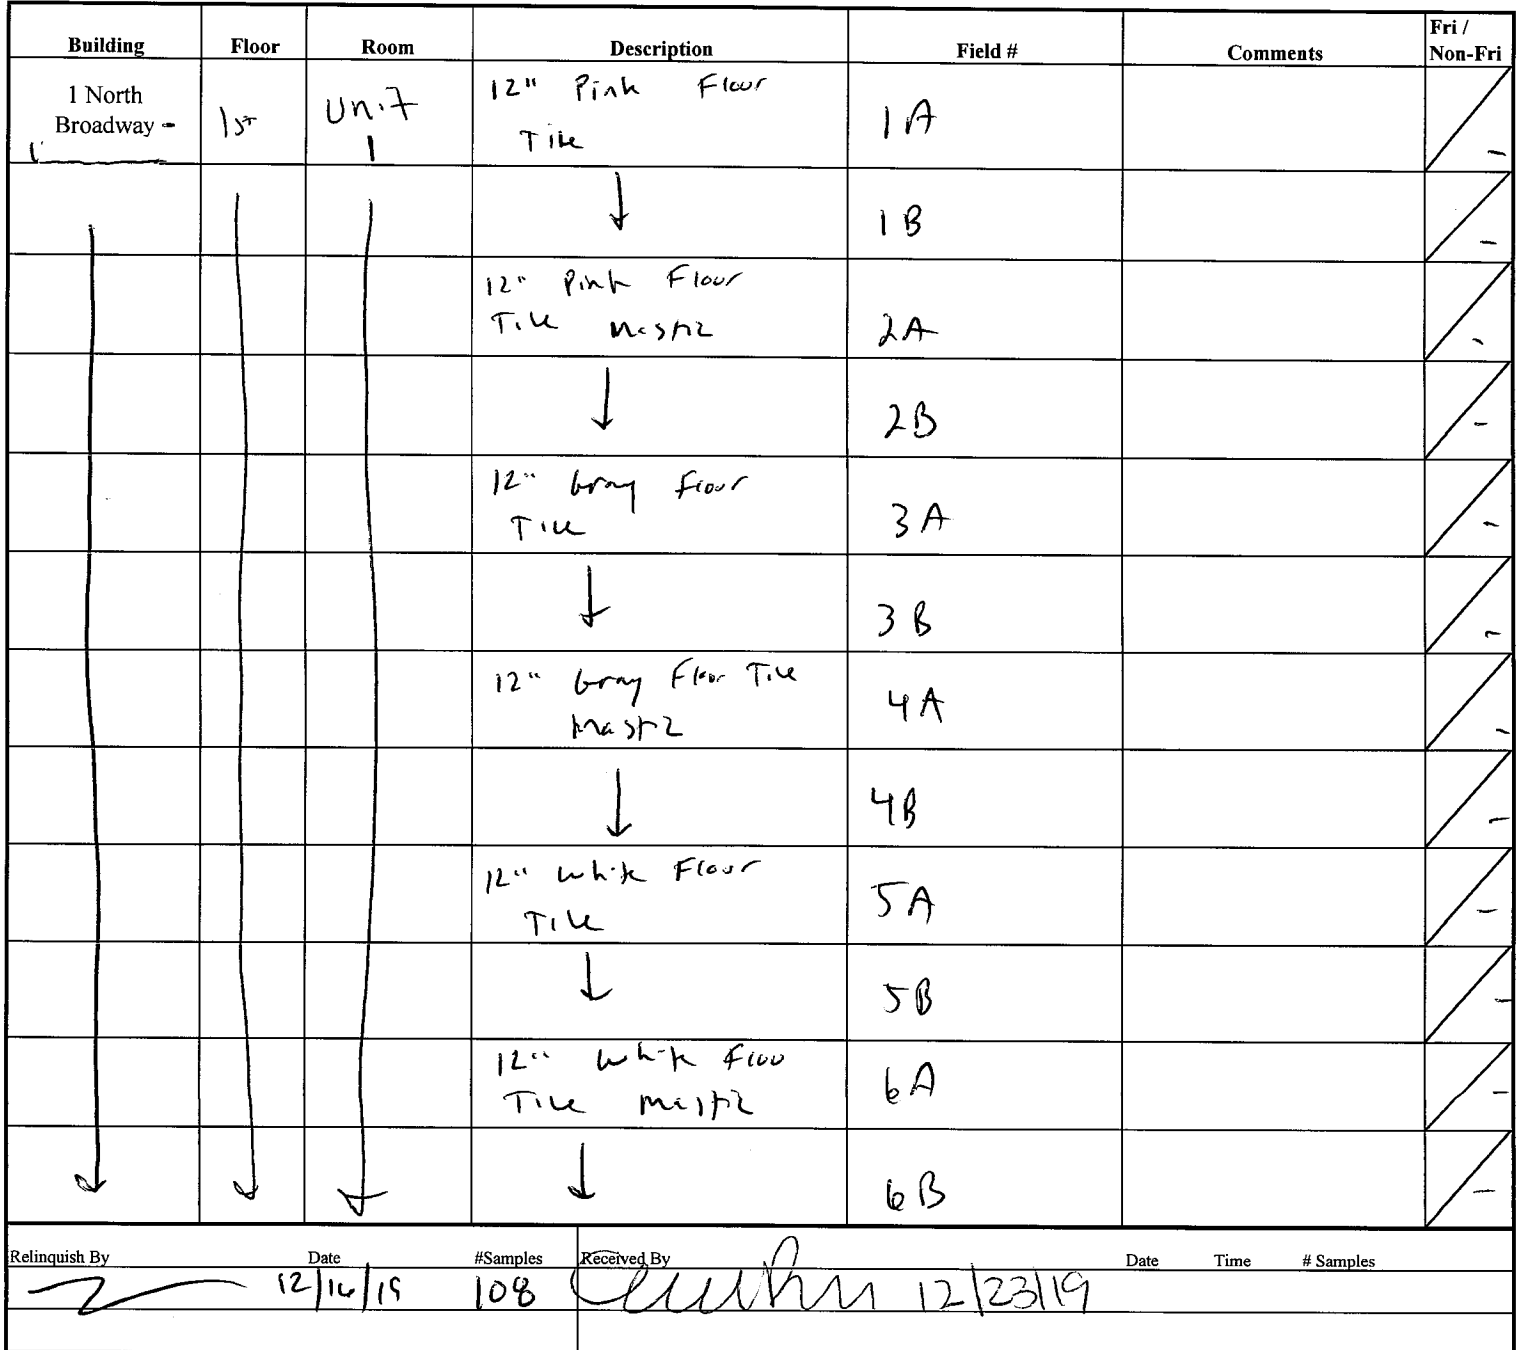 Building Floor Room Description Field # Comments Fri / Non-Fri
1 North Broadway - 1st Unit 1 12" Pink Floor Tile 1A
↓ 1B
12" Pink Floor Tile Mastic 2A
↓ 2B
12" Gray Floor Tile 3A
↓ 3B
12" Gray Floor Tile Mastic 4A
↓ 4B
12" White Floor Tile 5A
↓ 5B
12" White Floo Tile Mastic 6A
↓ 6B
Relinquish By Date #Samples Received By Date Time # Samples
12/16/19 108 12/23/19